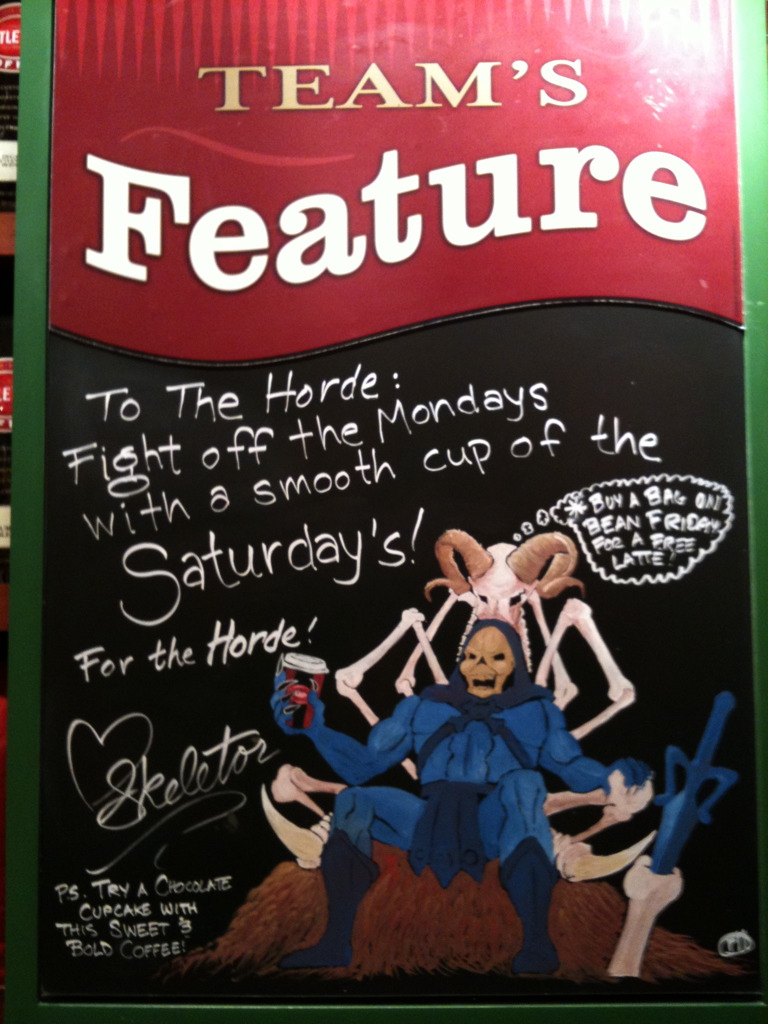 TEAM'S
Feature
To The Horde:
Fight off the Mondays
with a smooth cup of the
Saturday's!
For the Horde!
Skeletor
P.S. TRY A CHOCOLATE
CUPCAKE WITH
THIS SWEET &
BOLD COFFEE!
* BUY A BAG ON
BEAN FRIDAY
FOR A FREE
LATTE!
TLE